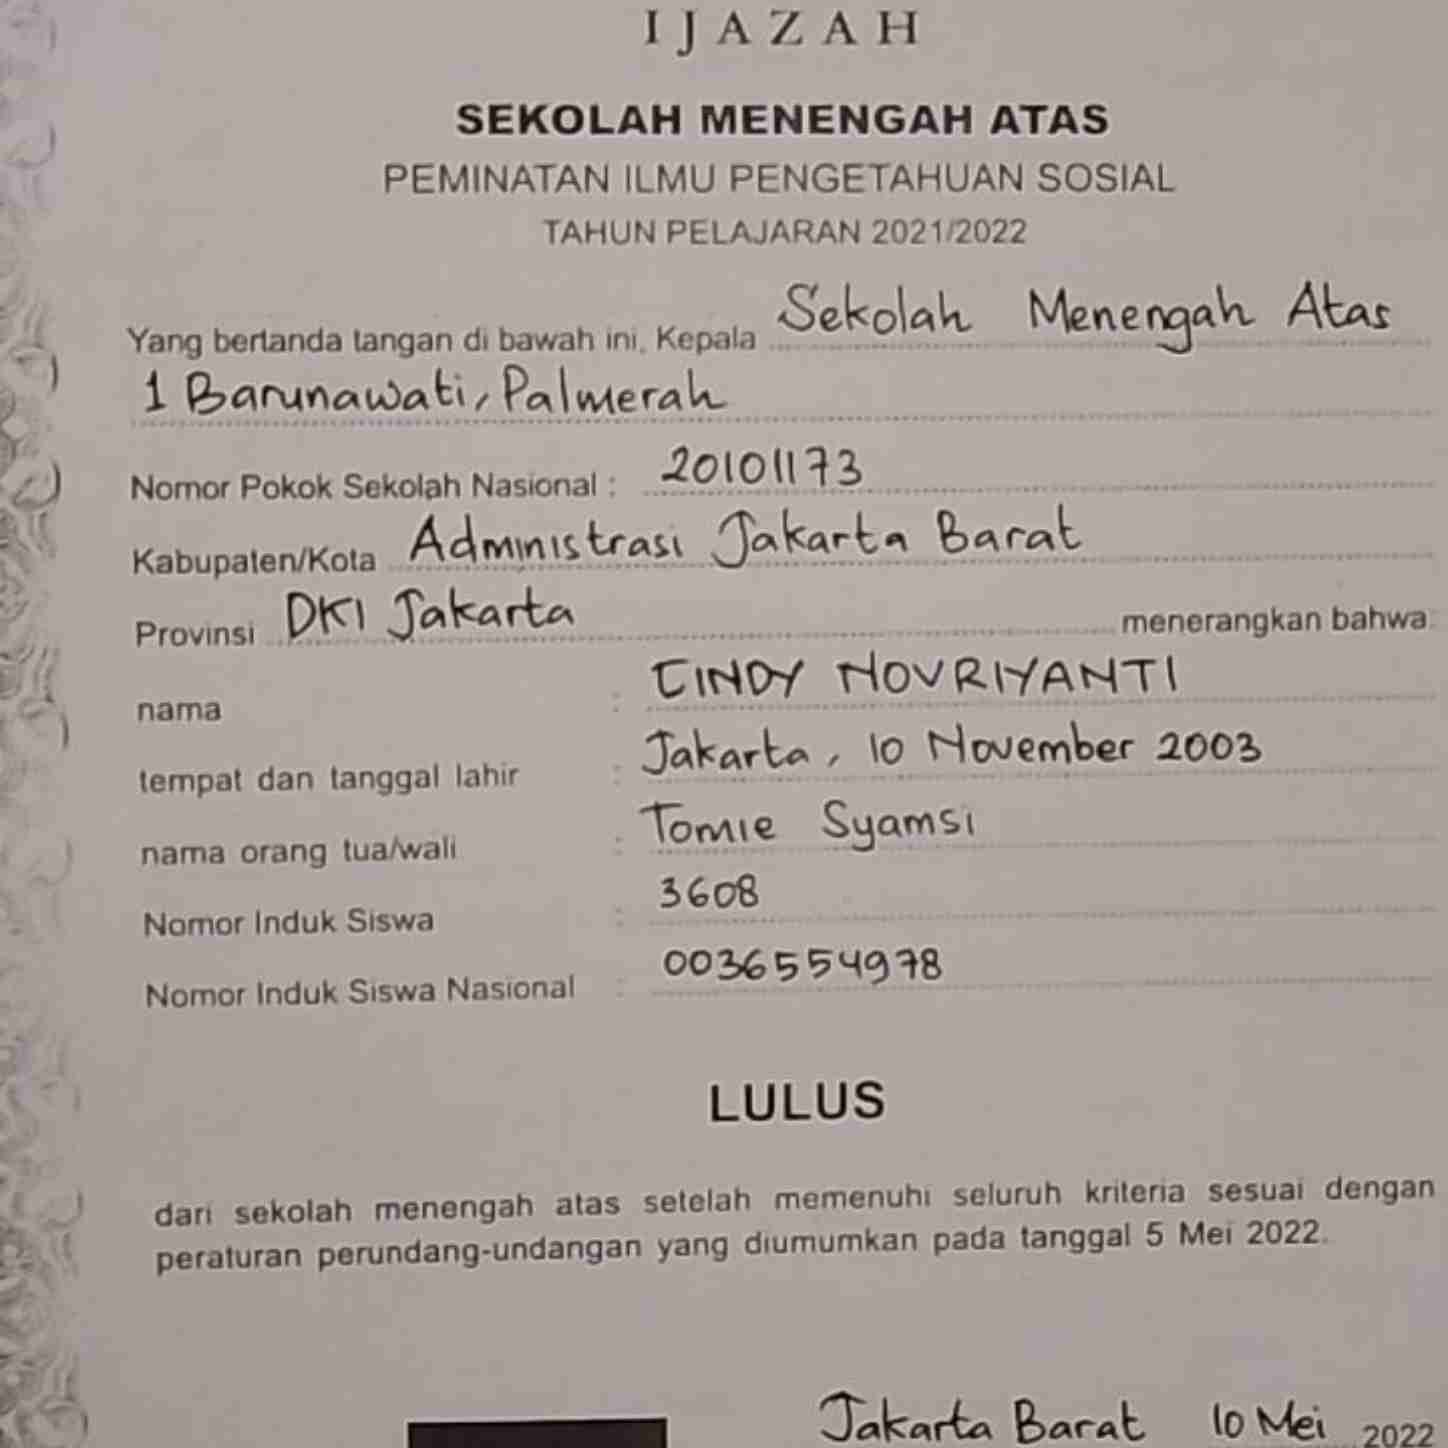 IJAZAH
SEKOLAH MENENGAH ATAS
PEMINATAN ILMU PENGETAHUAN SOSIAL
TAHUN PELAJARAN 2021/2022
Yang bertanda tangan di bawah ini, Kepala Sekolah Menengah Atas
1 Barunawati, Palmerah
Nomor Pokok Sekolah Nasional : 20101173
Kabupaten/Kota Administrasi Jakarta Barat
Provinsi DKI Jakarta menerangkan bahwa:
nama : CINDY NOVRIYANTI
tempat dan tanggal lahir : Jakarta, 10 November 2003
nama orang tua/wali : Tomie Syamsi
Nomor Induk Siswa : 3608
Nomor Induk Siswa Nasional : 0036554978
LULUS
dari sekolah menengah atas setelah memenuhi seluruh kriteria sesuai dengan
peraturan perundang-undangan yang diumumkan pada tanggal 5 Mei 2022.
Jakarta Barat 10 Mei 2022